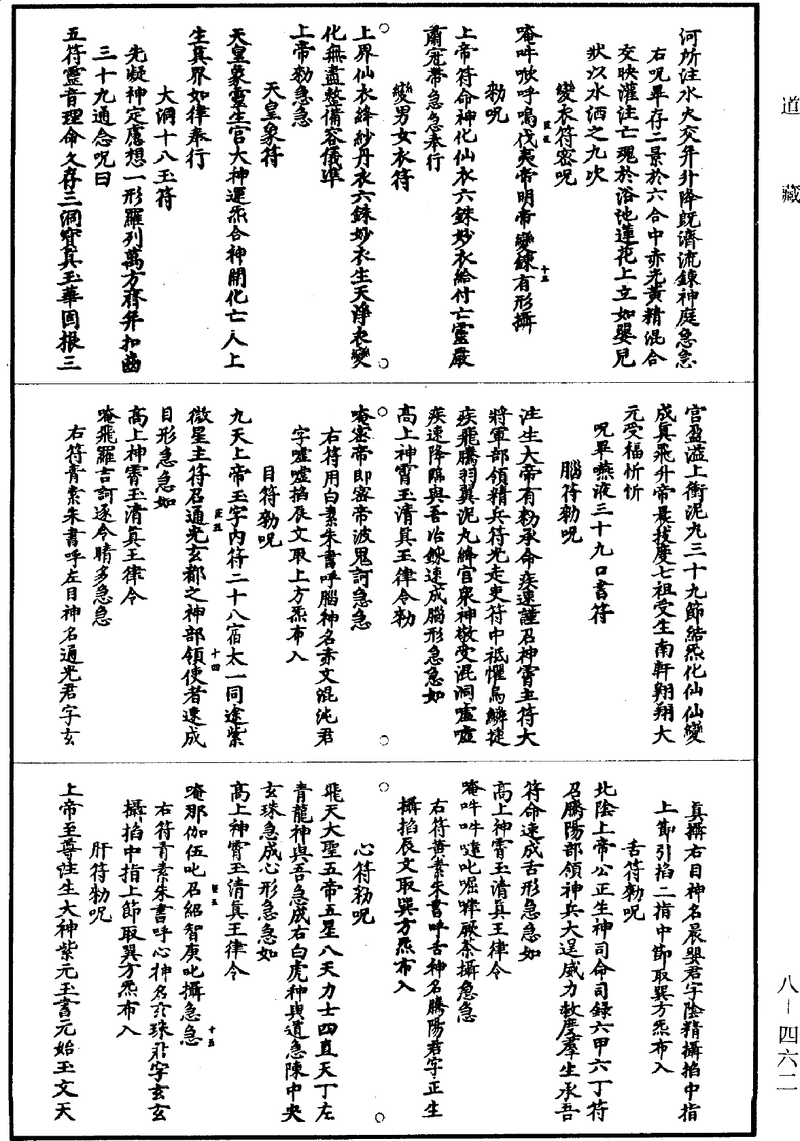 道藏
河所注水火交并升降既濟流鍊神庭急急
右呪畢存二景於六合中赤光黃精混合
交映灌注亡魂於浴池蓮花上立如嬰兒
狀以水洒之九吹
變衣符密呪
唵吽𠺁呼鳴伐夷帝明帝變鍊有形攝
勑呪
上帝符命神化仙衣六銖妙衣給付亡靈嚴
肅冠帶急急奉行
變男女衣符
上界仙衣絳紗丹衣六銖妙衣生天淨衣變
化無盡整備容儀準
上帝勑急急
天皇象符
天皇象靈生官大神運炁合神開化亡人上
生真界如律奉行
大洞十八玉符
先凝神定慮想一形羅列萬方齊并扣齒
三十九通念呪曰
五符靈音理命久存三洞寶真玉華固根三
宮盈溢上衝泥丸三十九節結炁化仙仙變
成真飛升帝晨拔度七祖受生南軒翱翔大
元受福忻忻
呪畢嚥液三十九口書符
腦符勑呪
注生大帝有勑承命疾速謹召神霄主符大
將軍部領精兵符光走吏符中祇懼鳥鱗捷
疾飛騰羽翼泥丸絳宮眾神散受混洞嚧嚧
疾速降臨與吾冶鍊速成腦形急急如
高上神霄玉清真王律令勑
唵密帝即密帝波鬼訶急急
右符用白素朱書呼腦神名赤文混沌君
字噓噓掐辰文取上方炁布入
目符勑呪
九天上帝玉字內符二十八宿太一同途紫
微星主符召通光玄都之神部領使者速成
目形急急如
高上神霄玉清真王律令
唵飛羅吉訶逐令睛多急急
右符青素朱書呼左目神名通光君字玄
真攝右目神名晨嬰君字陰精攝掐中指
上節引掐二指中節取巽方炁布入
舌符勑呪
北陰上帝公正生神司命司錄六甲六丁符
召騰陽部領神兵大逞威力救度羣生承吾
符命速成舌形急急如
高上神霄玉清真王律令
唵吽吽噠叱𡾰㘔厥奈攝急急
右符黃素朱書呼舌神名騰陽君字正生
攝掐辰文取巽方炁布入
心符勑呪
飛天大聖五帝五星八天力士四直天丁左
青龍神與吾急成右白虎神與道急陳中央
玄珠急成心形急急如
高上神霄玉清真王律令
唵那伽伍叱召紹智庚叱攝急急
右符青素朱書呼心神名於珠飛字玄玄
攝掐中指上節取巽方炁布入
肝符勑呪
上帝至尊注生大神紫元玉書元始玉文天
八—四六二